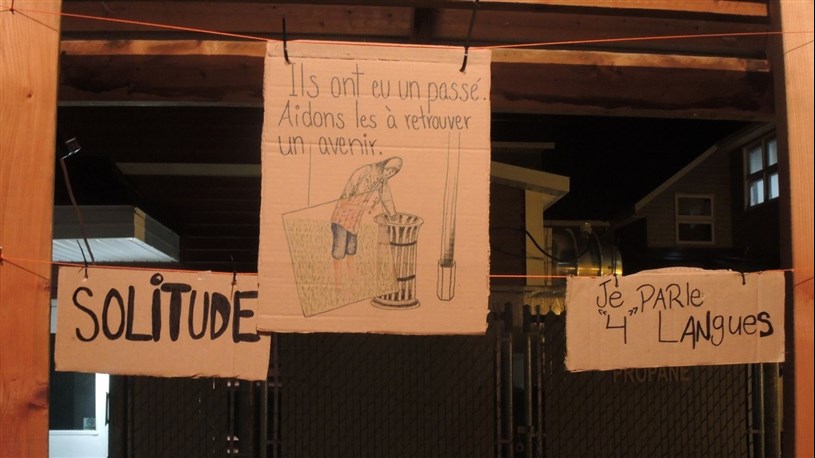 Ils ont eu un passé.
Aidons les à retrouver
un avenir.
SOLITUDE
Je PARle
"4" LANgues
PROPANE